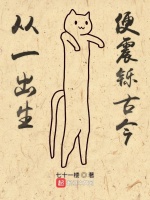 从一出生
便震铄古今
七十一楼 ◎著